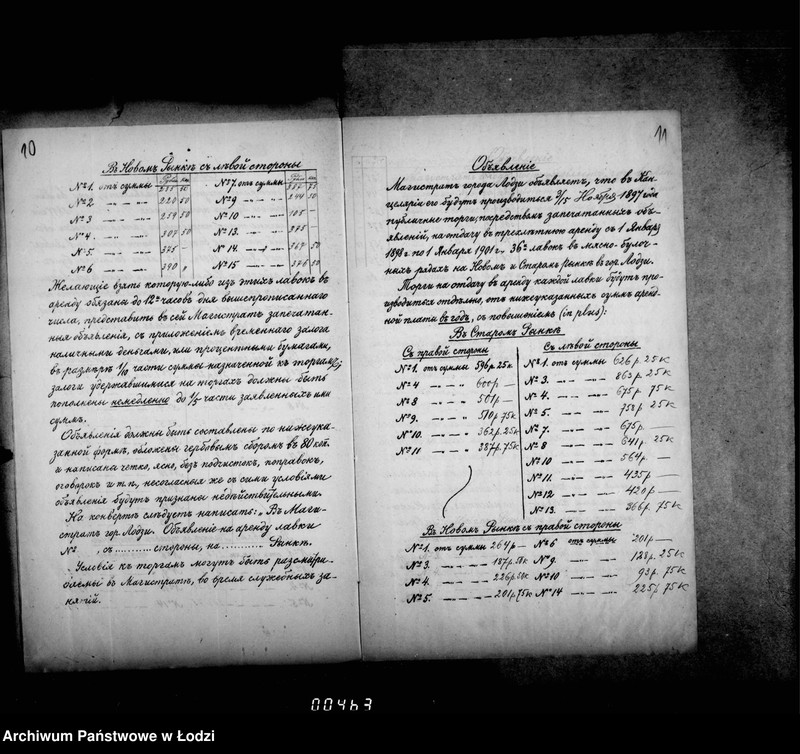 10
Въ Новомъ Рынкѣ съ лѣвой стороны
№ 1. отъ суммы 211 50 № 7. отъ суммы 317 75
№ 2 220 50 № 9 244 50
№ 3 259 50 № 10 105 —
№ 4. 307 50 № 13. 275
№ 5. 375 — № 14. 367 50
№ 6 390 № 15 376 50
Желающіе взять которую-либо изъ этихъ лавокъ въ
аренду обязаны до 12 часовъ дня вышепрописаннаго
числа, представить въ сей Магистратъ запечатан-
ныя объявленія, съ приложеніемъ временнаго залога
наличными деньгами, или процентными бумагами,
въ размѣрѣ 1/10 части суммы назначенной къ торгамъ;
залоги удержавшимися на торгахъ должны быть
пополнены немедленно до 1/5 части заявленныхъ ими
суммъ.
Объявленія должны быть составлены по нижеука-
занной формѣ, обложены гербовымъ сборомъ въ 80 коп.
и написана четко, ясно, безъ подчистокъ, поправокъ,
оговорокъ и т.п., несогласныя же съ сими условіями
объявленія будутъ признаны недѣйствительными.
На конвертѣ слѣдуетъ написать: „Въ Маги-
стратъ гор. Лодзи. Объявленіе на аренду лавки
№ , съ ........... стороны, на ........... Рынкѣ.
Условія къ торгамъ могутъ быть разсматри-
ваемы въ Магистратѣ, во время служебныхъ за-
нятій.
11
Объявленіе
Магистратъ города Лодзи объявляетъ, что въ Кан-
целяріи его будутъ производиться 3/15 Ноября 1897 года
публичные торги, посредствомъ запечатанныхъ объ-
явленій, на отдачу въ трехлѣтнюю аренду съ 1 Января
1898 г. по 1 Января 1901 г., 36 лавокъ въ мясно-булоч-
ныхъ рядахъ на Новомъ и Старомъ Рынкѣ въ гор. Лодзи.
Торги на отдачу въ аренду каждой лавки будутъ про-
изводиться отдѣльно, отъ нижеуказанныхъ суммъ аренд-
ной платы въ годъ, съ повышеніемъ (in plus):
Въ Старомъ Рынкѣ
Съ правой стороны
№ 1. отъ суммы 596 р. 25 к.
№ 4 600 р —
№ 8 501 р —
№ 9. 510 р. 75 к
№ 10. 362 р. 25 к
№ 11 387 р. 75 к
Съ лѣвой стороны
№ 1. отъ суммы 626 р. 25 к
№ 3. 863 р. 25 к
№ 4. 675 р. 75 к
№ 5. 758 р. 25 к
№ 7. 675 р. —
№ 8 641 р. 25 к
№ 10 564 р. —
№ 11. 435 р —
№ 12 420 р —
№ 13. 366 р. 75 к
Въ Новомъ Рынкѣ съ правой стороны
№ 1. отъ суммы 264 р — № 6 отъ суммы 201 р —
№ 3. 187 р. 50 к № 9. 128 р. 25 к
№ 4. 226 р. 50 к № 10 93 р. 75 к
№ 5. 201 р. 75 к № 14 225 р. 75 к
00463
Archiwum Państwowe w Łodzi